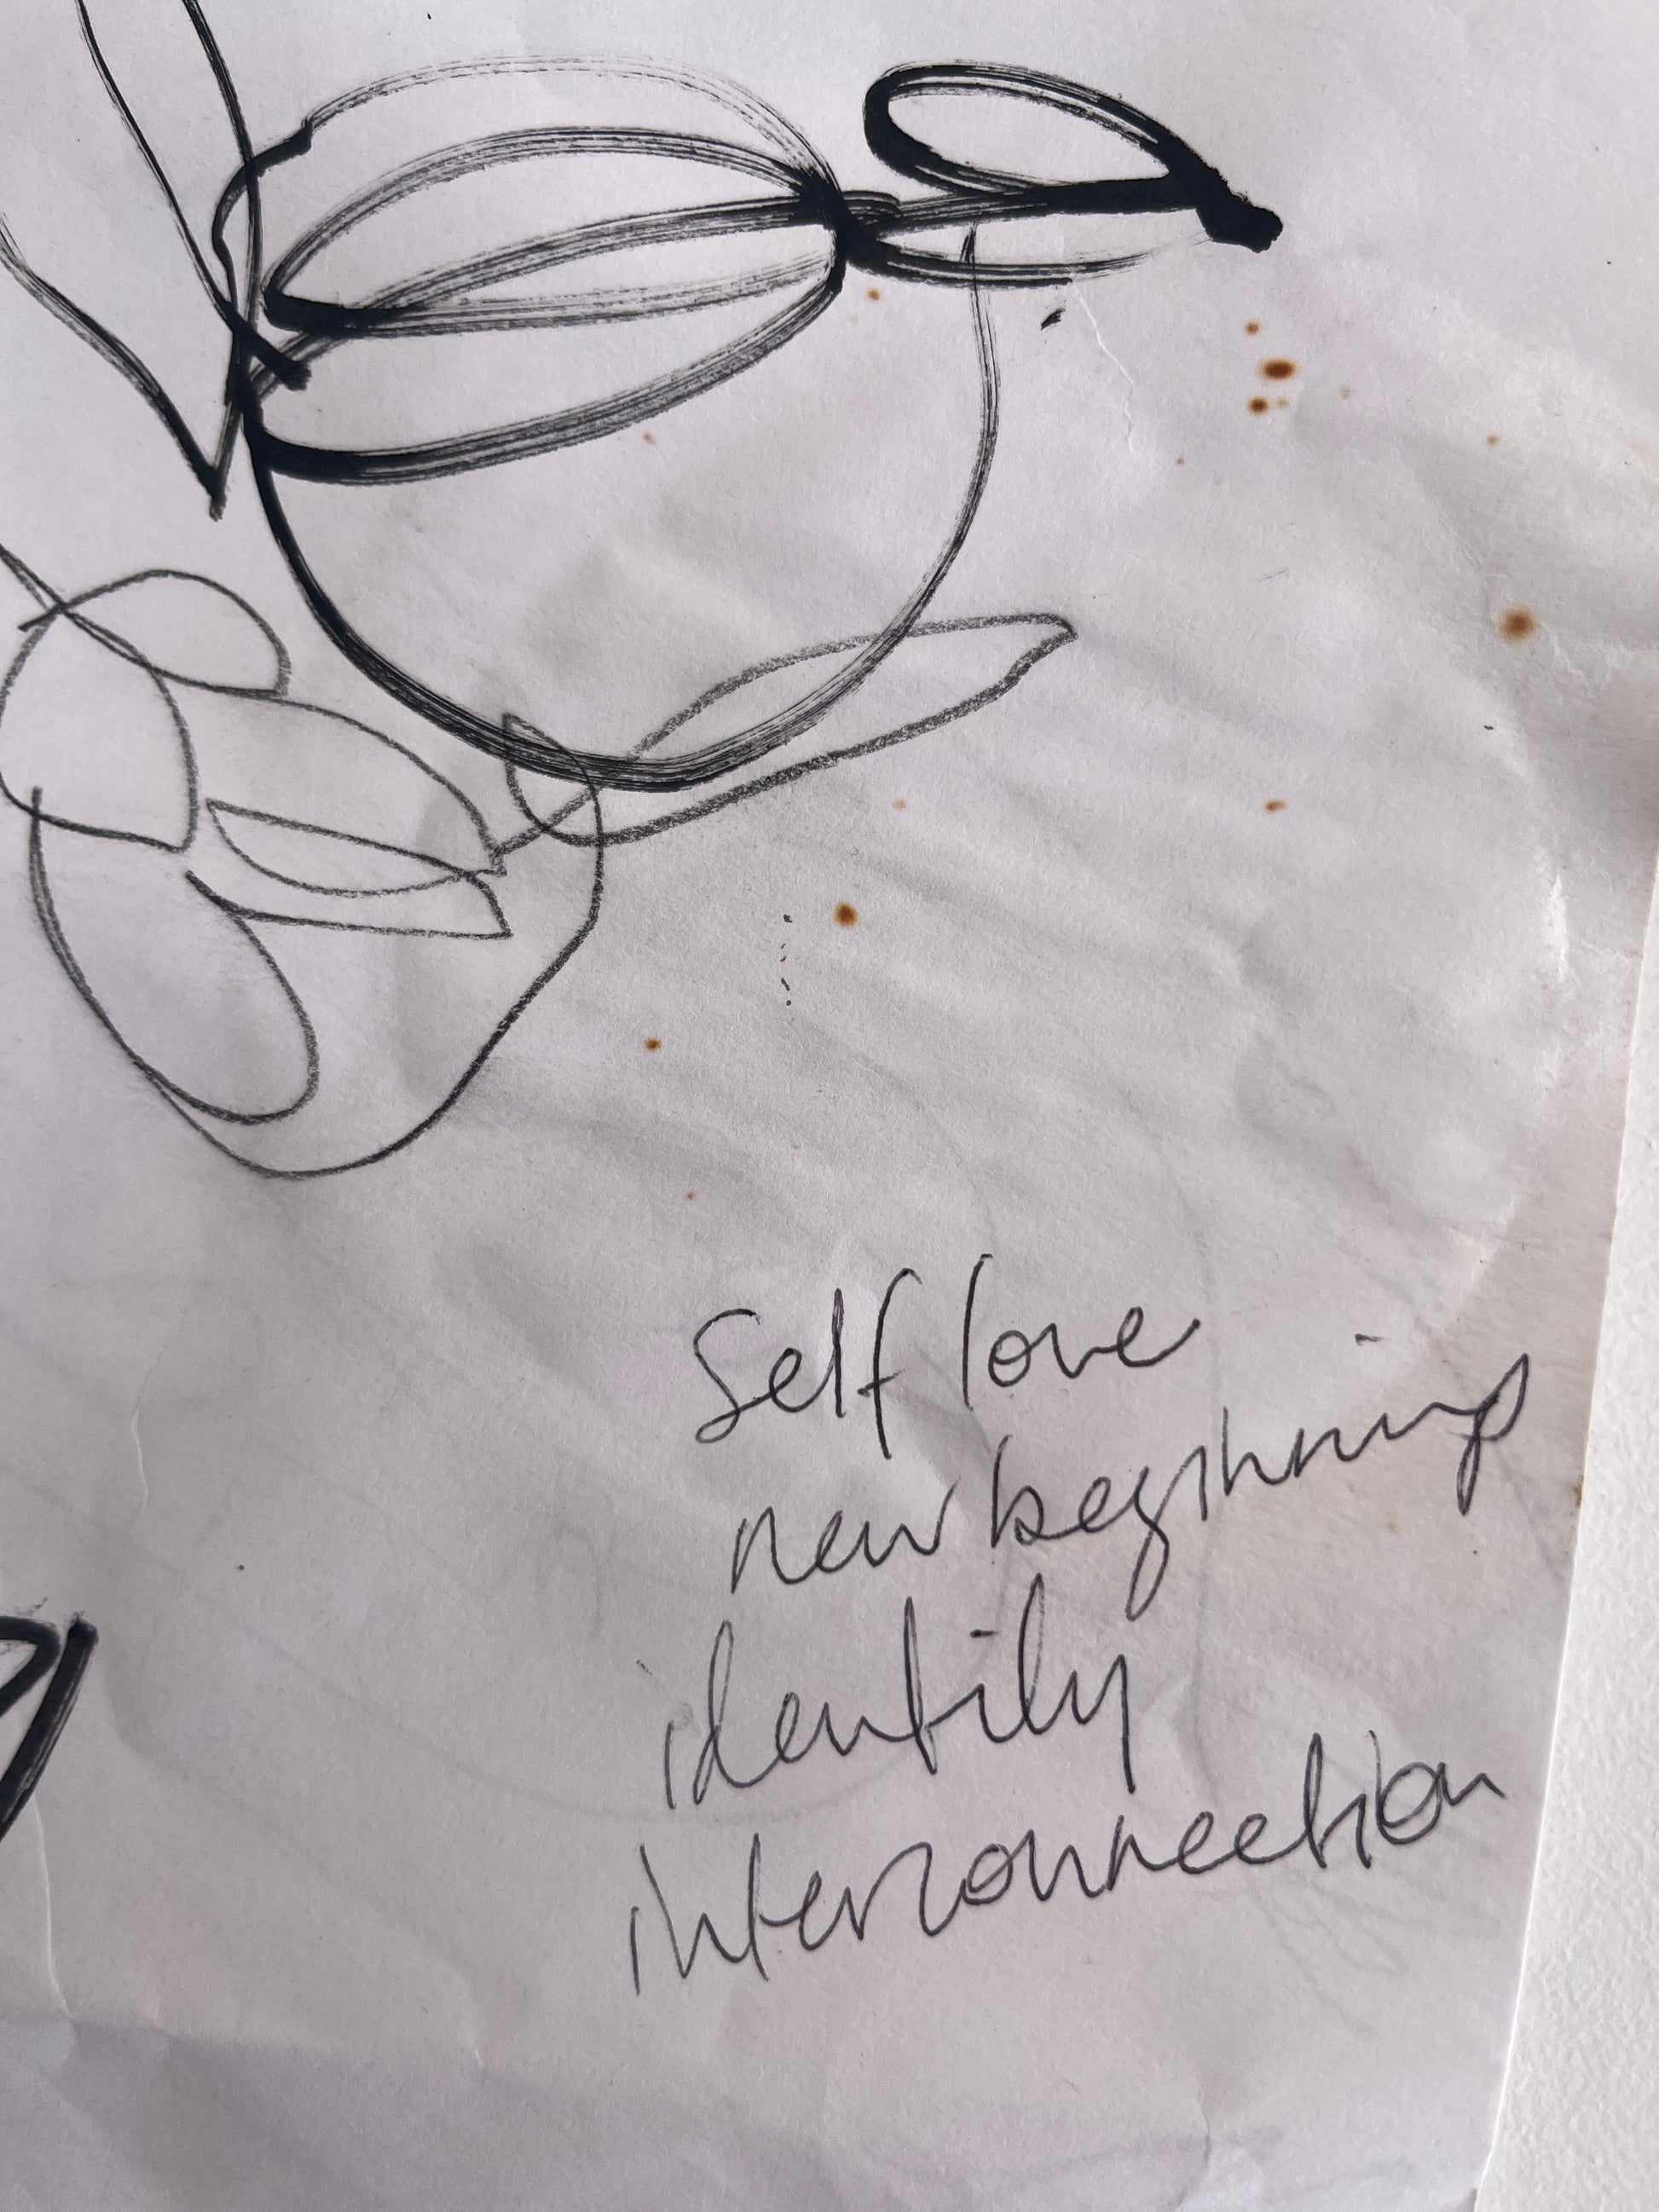 Self love
new beginnings
identity
interconnection